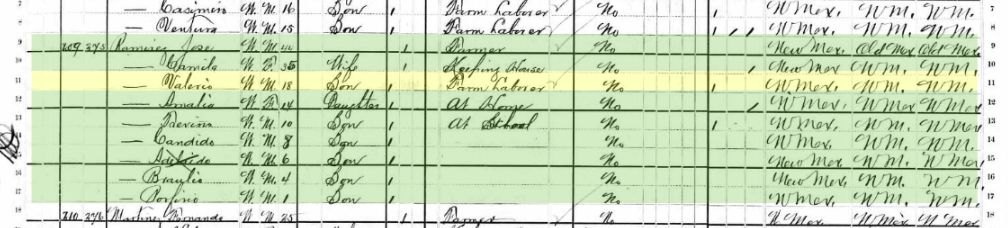 — Casimiro W. M. 16 Son 1 Farm Laborer No 1 N Mex. N M. N M. 7
8 — Ventura W. M. 15 Son 1 Farm Laborer No 1 / / N Mex. N M. N M. 8
9 209 375 Ramirez Jose W. M. 44 1 Farmer No New Mex. Old Mex Old Mex 9
10 — Camila W. F. 35 Wife 1 Keeping House No / New Mex. N M. N M. 10
11 — Valerio W. M. 18 Son 1 Farm Laborer No 1 N Mex. N M. N M. 11
12 — Amalia W. F. 14 Daughter 1 At Home No / N Mex. N Mex N Mex 12
13 — W. M. 10 Son 1 At School No 1 N Mex. N M. N M. 13
14 — Candido W. M. 8 Son 1 No N Mex. N M. N M. 14
15 — W. M. 6 Son 1 No New Mex. N M. N Mex. 15
16 — Braulio W. M. 4 Son 1 No New Mex. N M. N M. 16
17 — Porfirio W. M. 1 Son 1 No N Mex. N M. N M. 17
18 210 376 Martinez W. M. 25 1 Farmer No N Mex. N Mex N Mex 18